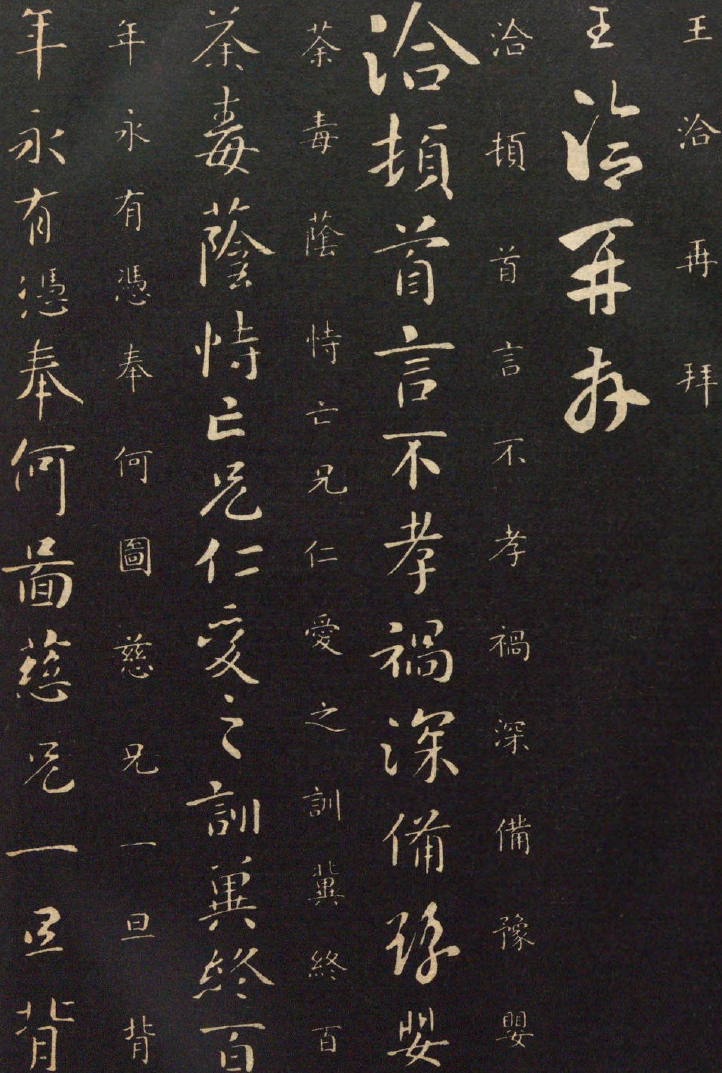 王洽再拜
王洽再拜
洽頓首言不孝禍深備豫嬰
洽頓首言不孝禍深備豫嬰
荼毒蔭恃亡兄仁愛之訓冀終百
荼毒蔭恃亡兄仁愛之訓冀終百
年永有憑奉何圖慈兄一旦背
年永有憑奉何圖慈兄一旦背